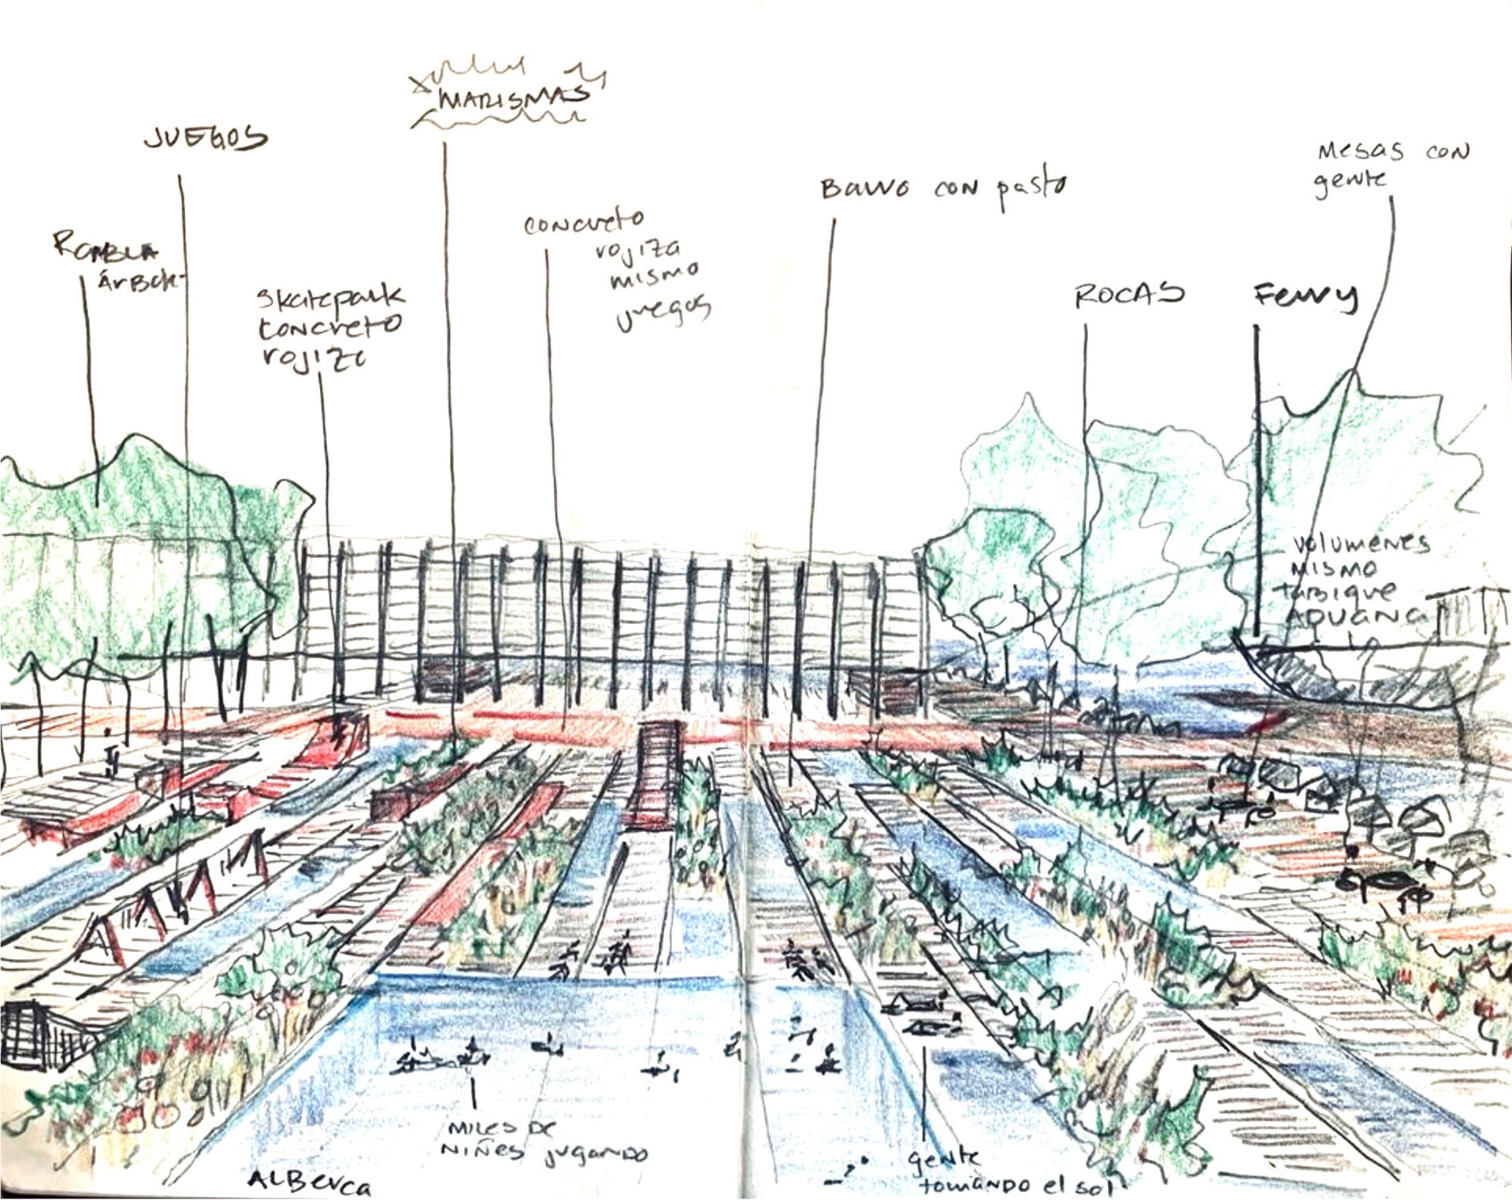 MARISMAS
JUEGOS
Mesas con
gente
Barro con pasto
Rambla
Árbol
concreto
rojiza
mismo
juegos
skatepark
concreto
rojizo
ROCAS
Ferry
volumenes
mismo
tabique
ADUANA
MILES DE
NIÑES jugando
gente
tomando el sol
ALBERCA